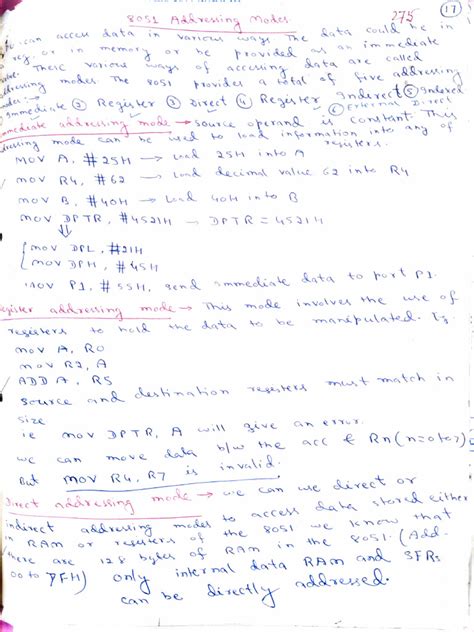 8051 Addressing Modes.
275
17
can access data in various ways. The data could be in
reg. or in memory or be provided as an immediate
These various ways of accessing data are called
addressing modes. The 8051 provides a total of five addressing
Immediate ② Register ③ Direct ④ Register Indirect ⑤ Indexed
⑥ External Direct
immediate addressing mode → source operand is constant. This
addressing mode can be used to load information into any of
registers.
MOV A, #25H → Load 25H into A
MOV R4, #62 → Load decimal value 62 into R4
MOV B, #40H → Load 40H into B
MOV DPTR, #4521H → DPTR = 4521H
⇓
MOV DPL, #21H
MOV DPH, #45H
MOV P1, #55H, send immediate data to port P1.
register addressing mode → This mode involves the use of
registers to hold the data to be manipulated.
MOV A, R0
MOV R2, A
ADD A, R5
source and destination registers must match in
size
ie MOV DPTR, A will give an error.
we can move data b/w the acc & Rn (n=0 to 7)
But MOV R4, R7 is invalid.
Direct addressing mode → we can use direct or
indirect addressing modes to access data stored either
in RAM or registers of the 8051. we know that
there are 128 bytes of RAM in the 8051. (Add.
00 to 7FH) only internal data RAM and SFRs
can be directly addressed.